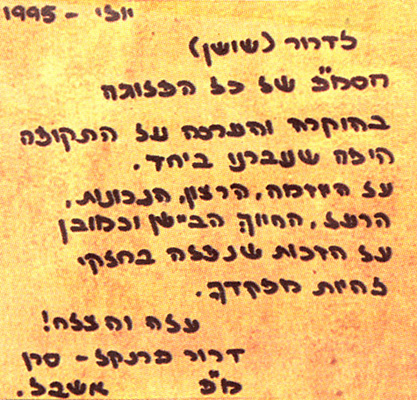 יולי - 1995
לדרור (שושן)
הסמ"פ של כל הפלוגה
בהוקרה והערכה על התקופה
היפה שעברנו ביחד.
על היוזמה, הרצון, הנכונות,
הרעל, החיוך הביישן וכמובן
על הזכות שנפלה בחלקי
להיות מפקדך.
עלה והצלח!
דרור פרנקל - סרן
מ"פ אשבל.